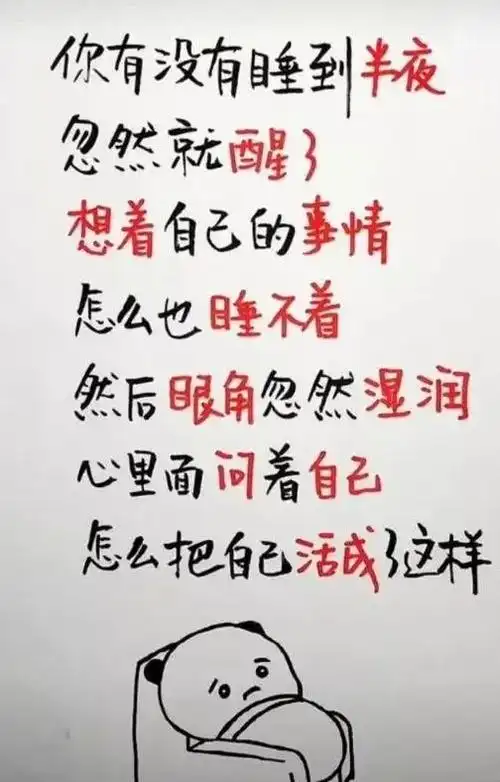 你有没有睡到半夜
忽然就醒了
想着自己的事情
怎么也睡不着
然后眼角忽然湿润
心里面问着自己
怎么把自己活成了这样